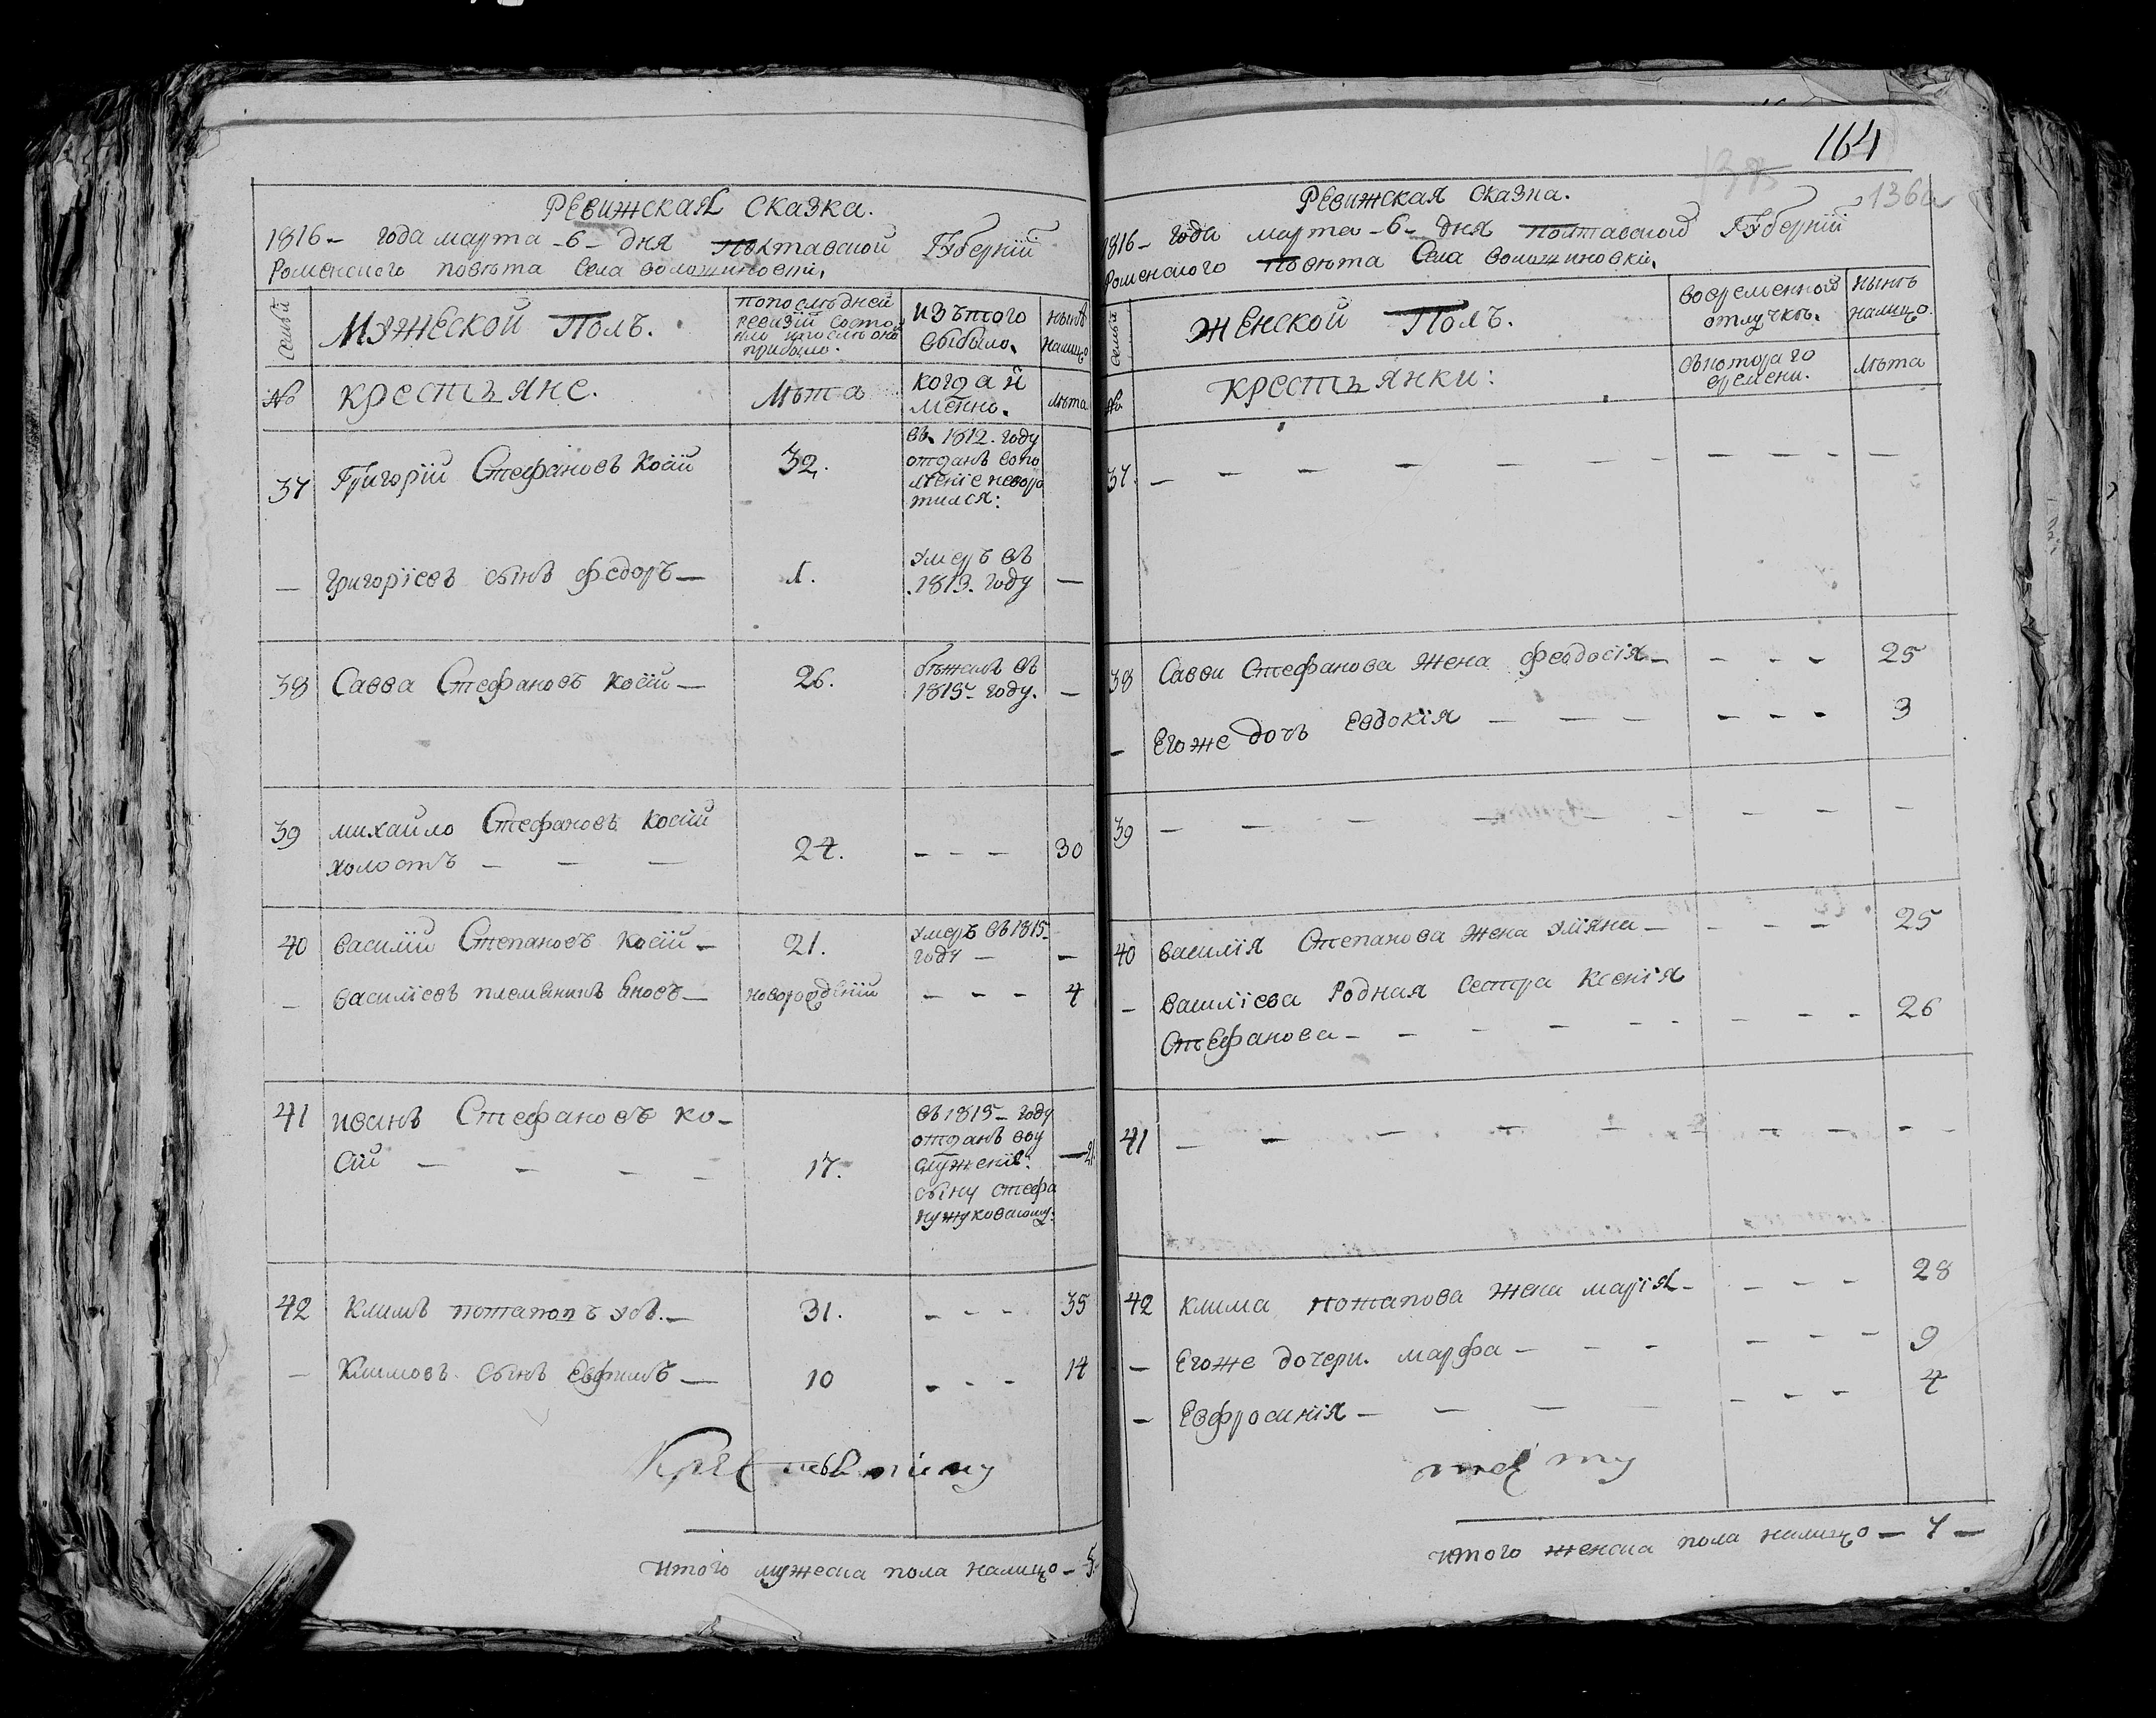 Ревижская сказка.
1816- года марта -6- дня Полтавской Губерніи
Роменского повѣта Села воложиновки,
семьи
Мужеской Полъ.
попослѣдней
ревизіи состо
яло ипослѣ оной
прибыло.
изътого
выбыло.
нынѣ
налицо
№
крестьяне.
Лѣта
когда и
менно.
лѣта
37 Григорій Стефановъ Косій 32.
въ 1812. году
отданъ вопо
лченіе неворо
тился:
— григоріевъ сынъ федоръ — 1.
умеръ въ
1813. году —
38 Савва Стефановъ Косій — 26.
бѣжалъ въ
1815- году. —
39 михайло Стефановъ Косій
холостъ — — — 24. - - - 30
40 василій Степановъ Косій — 21.
умеръ въ 1815-
году — —
— василіевъ племѣникъ — новорожденій - - - 4
41 иванъ Стефановъ ко-
сій — — — — 17.
въ 1815- году
отданъ воу
служеніе
сыну стефа
ну жуковскому. — 21
42 климъ потапопъ — 31. - - - 35
— Климовъ Сынъ Евфимъ — 10 - - - 14
итого мужеска пола налицо - 5-
164
136а
Ревижская Сказка.
1816- года марта -6- дня полтавской Губерніи
Роменского повѣта Села воложиновки,
семьи
женской Полъ.
вовременной
отлучкѣ.
нынѣ
налицо.
№
крестьянки:
скотораго
времени.
лѣта
37. — — — — — — — — — — —
38 Савви Стефанова жена феодосія — - - - 25
— Егоже дочь Евдокія — — — - - - 3
39 — — — — — — — — — — —
40 василія Степанова жена уліяна — - - - 25
— василіева Родная Сестра Ксенія
Стефанова — — — — — — — — 26
41 — — — — — — — — — —
42 клима потапова жена марія — - - - 28
— Егоже дочери. марфа — - - - - - 9
— Евфросинія — — — — - - - 4
итого женска пола налицо — 7 —